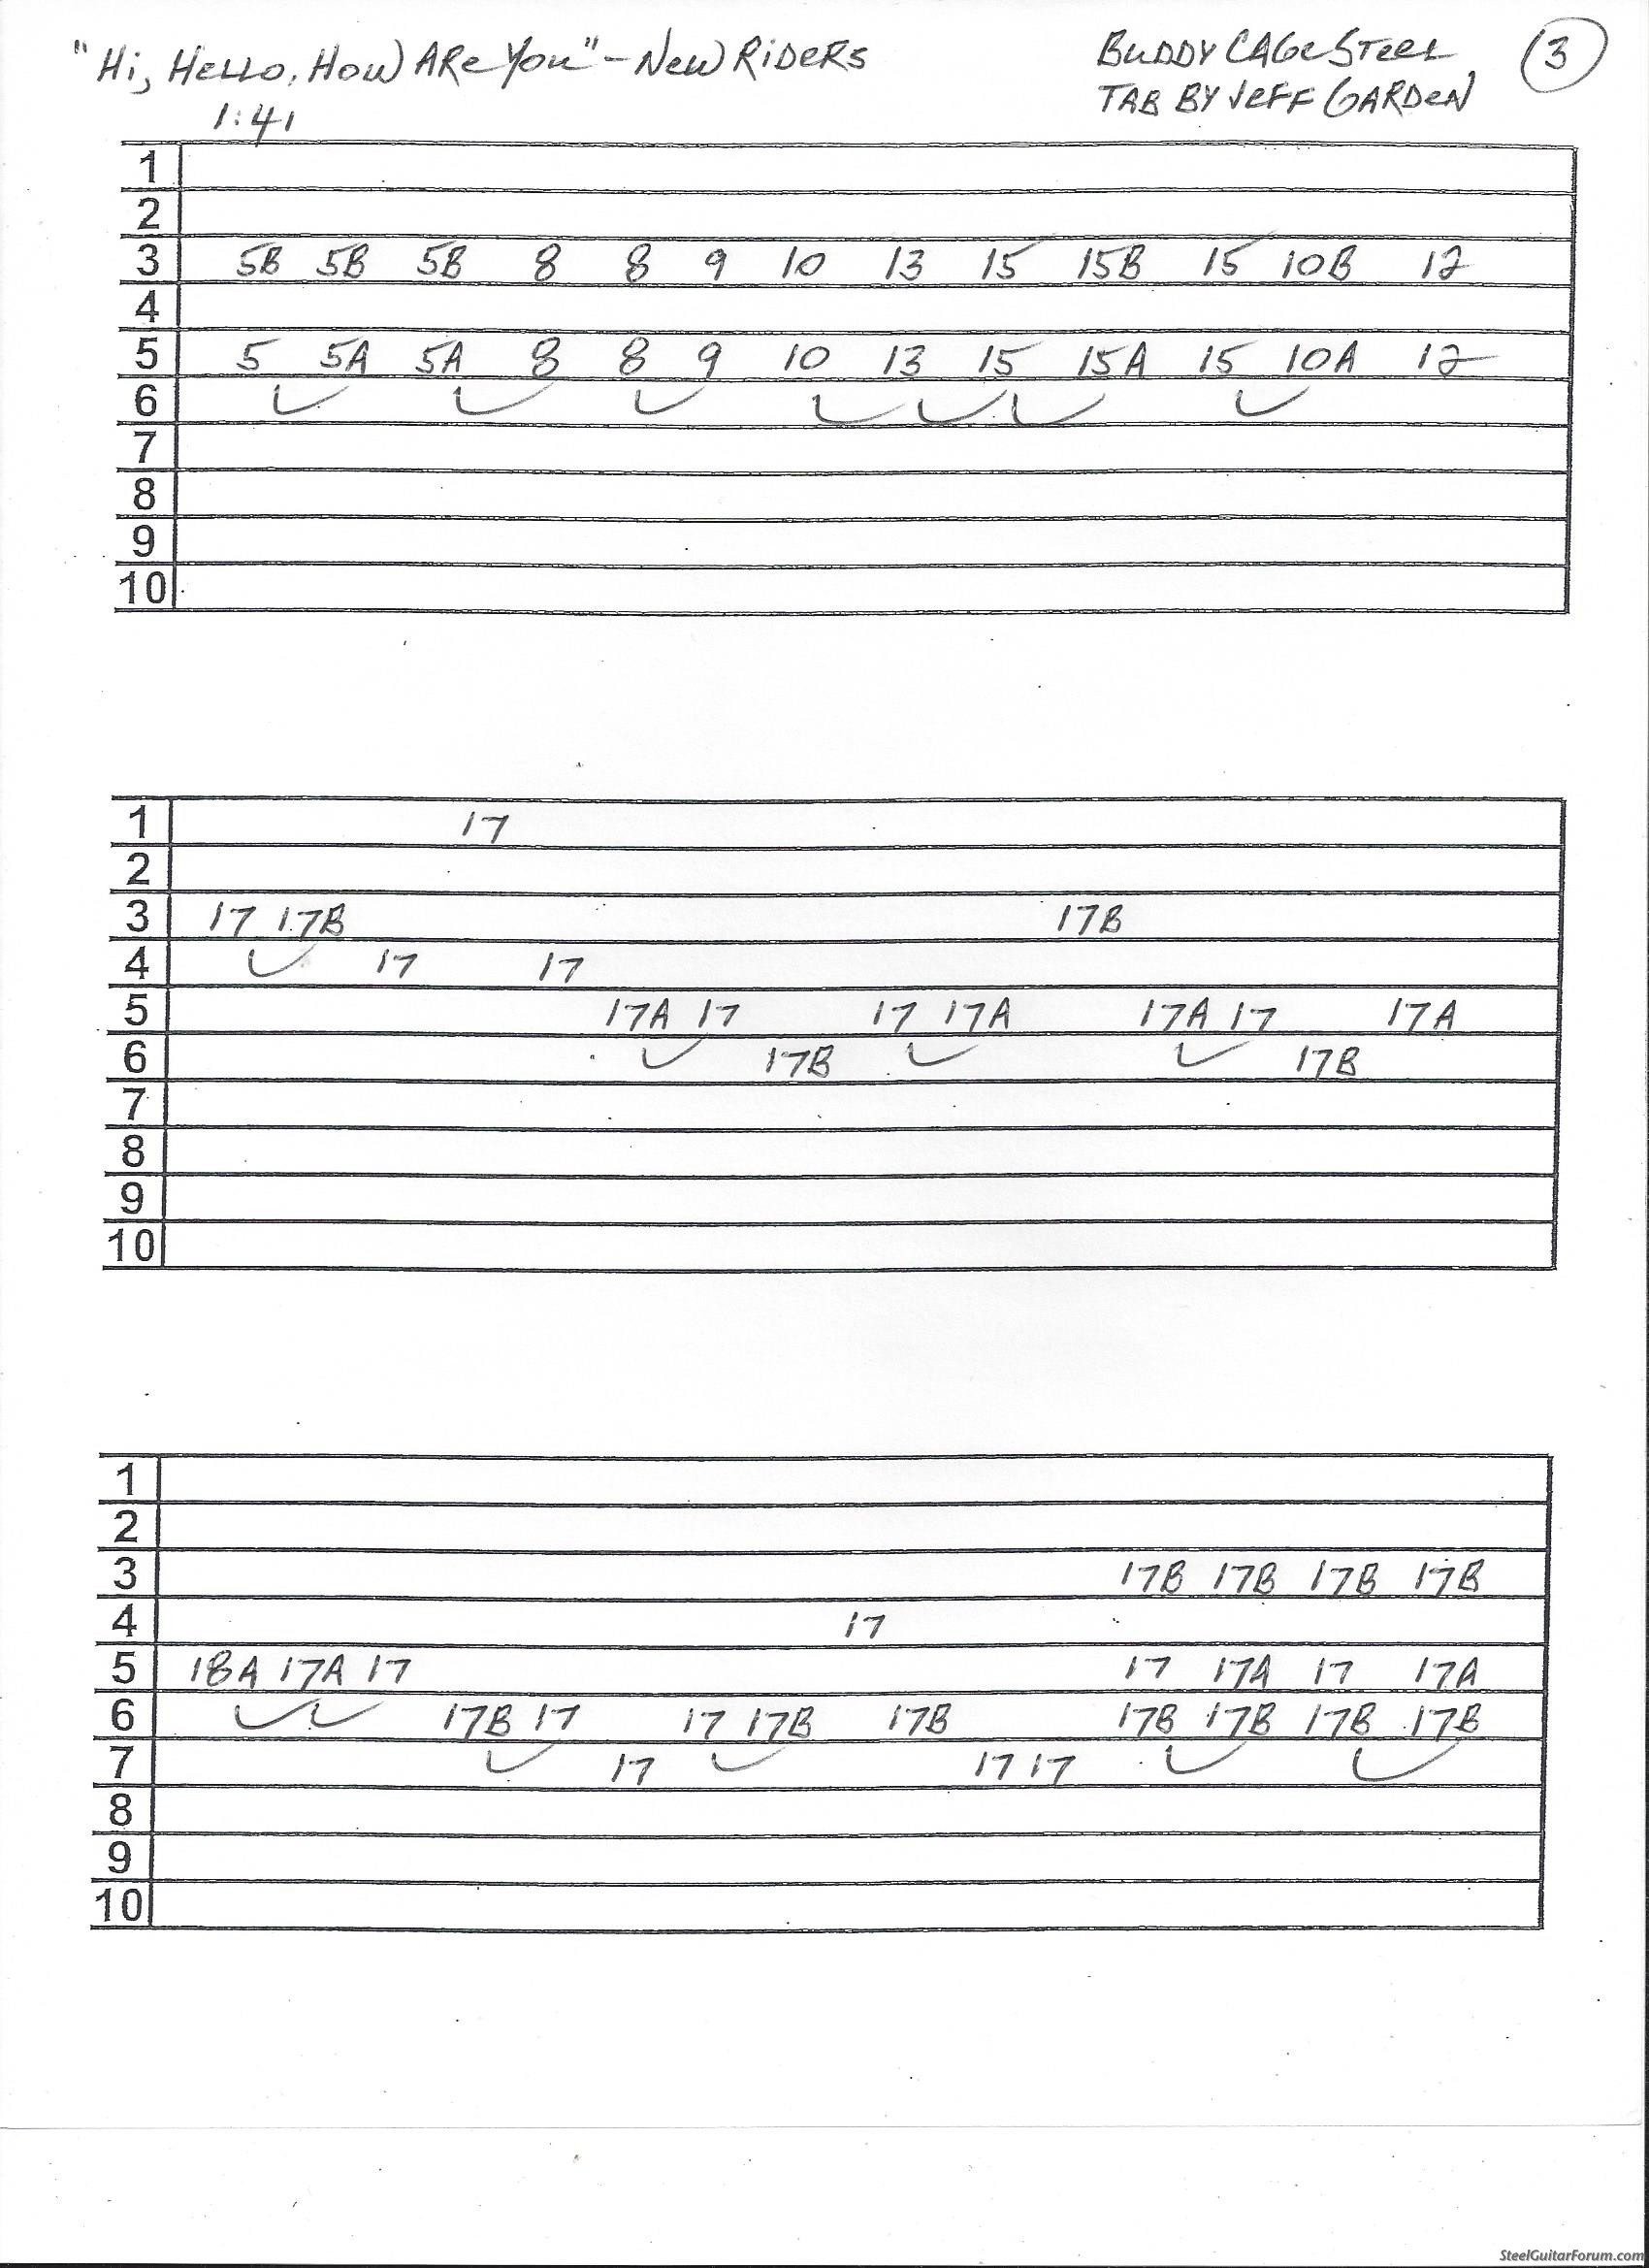 "Hi, Hello, How Are You" – New Riders
Buddy Cage Steel
3
Tab by Jeff Garden
1:41
1
2
3 5B 5B 5B 8 8 9 10 13 15 15B 15 10B 12
4
5 5 5A 5A 8 8 9 10 13 15 15A 15 10A 12
6
7
8
9
10
1 17
2
3 17 17B 17B
4 17 17
5 17A 17 17 17A 17A 17 17A
6 17B 17B
7
8
9
10
1
2
3 17B 17B 17B 17B
4 17
5 18A 17A 17 17 17A 17 17A
6 17B 17 17 17B 17B 17B 17B 17B 17B
7 17 17 17
8
9
10
SteelGuitarForum.com